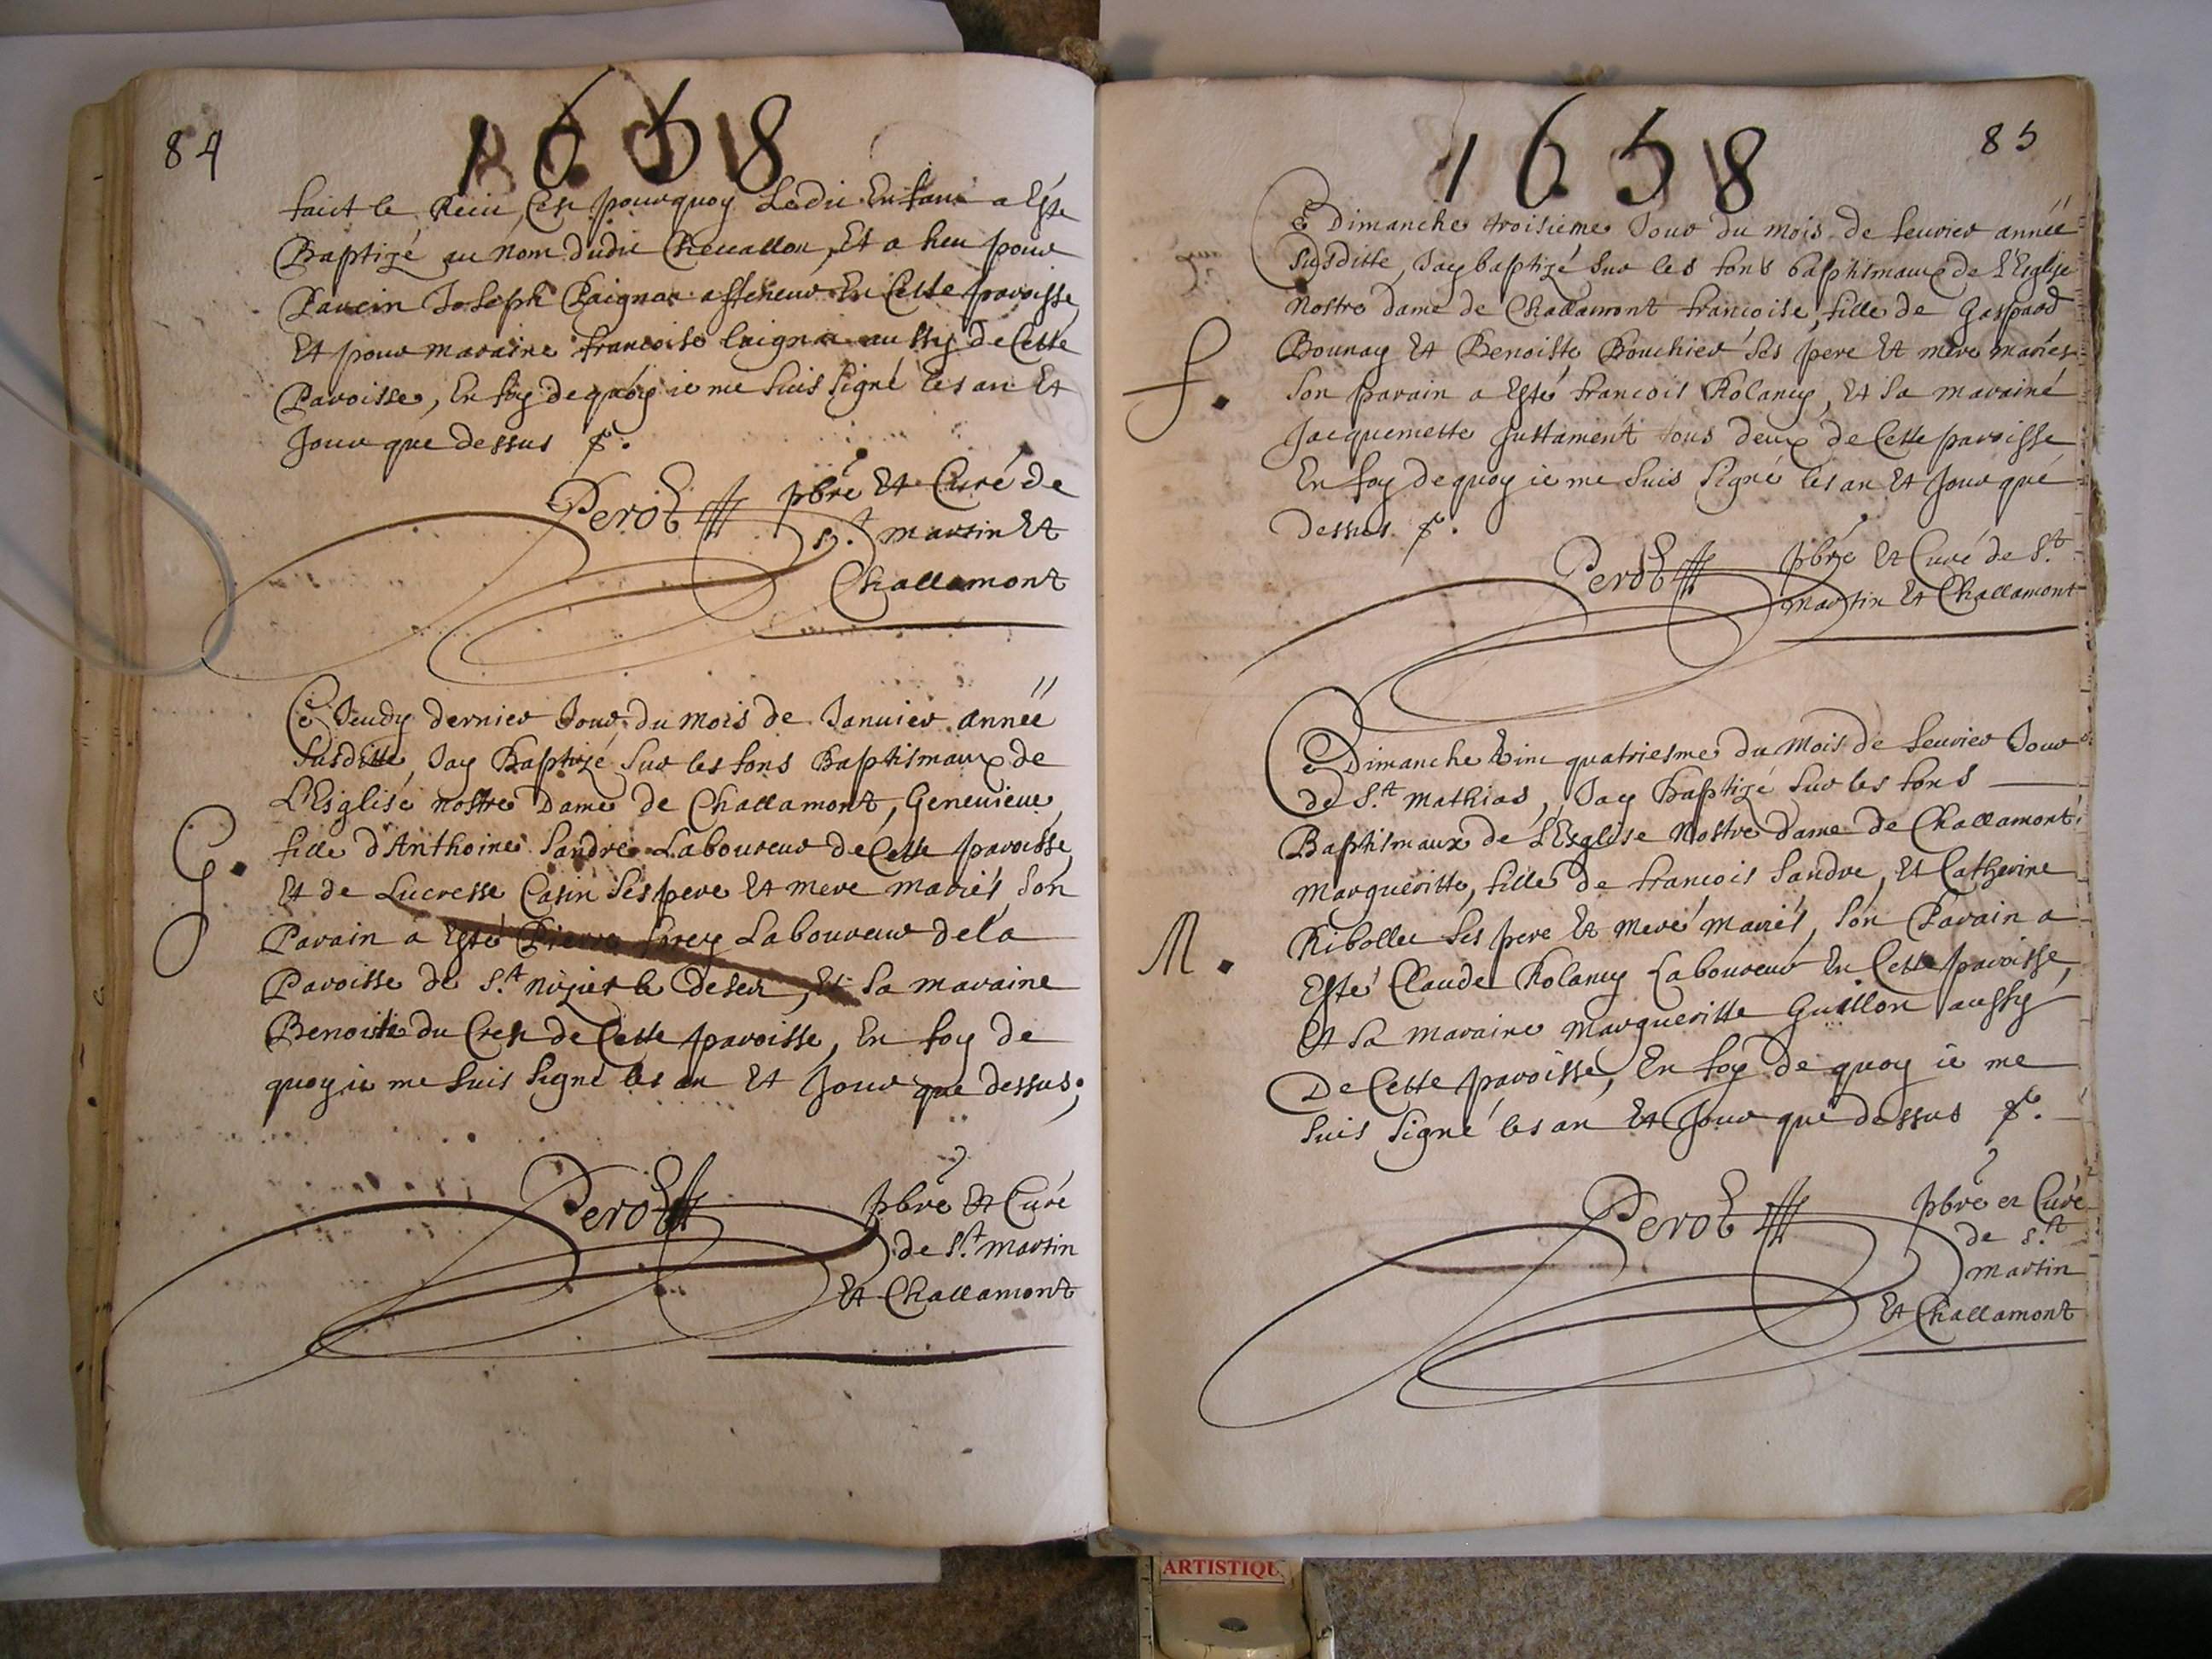 84
1658
faict le Reiu, Cest pourquoy Ledit Enfant a Esté
Baptizé au nom dudit Cheuallon, Et a heu pour
Parrin Joseph Paignon affeneur En Cette paroisse,
Et pour maraine francoise aussy de Cette
Paroisse, En foy de quoy ie me suis signé les an Et
Jour que dessus
Perot pbre Et Curé de
St. martin Et
Challamont
Ce Jeudy dernier Jour du mois de Januier année
susditte, Jay Baptizé sur les fons Baptismaux de
L'Esglise nostre Dame de Challamont, Geneuieue
G.
fille d'Anthoine Sandre Laboureur de Cette paroisse,
Et de Lucresse Casin ses pere Et mere mariés, son
Parain a Esté Pierre Laboureur de la
Paroisse de St. nizier le desert, Et sa maraine
Benoite du Crest de Cette paroisse, En foy de
quoy ie me suis signé les an Et Jour que dessus;
Perot pbre Et Curé
de St. martin
Et Challamont
1658
85
Ce Dimanche troisieme Jour du mois de feurier année
susditte, Jay baptizé sur les fons baptismaux de L'Esglise
nostre dame de Challamont francoise, fille de Gaspard
f.
Bounay Et Benoiste Bouchier ses pere Et mere mariés
son parain a Esté francois Rolany, Et sa maraine
Jacquemette Justament tous deux de Cette paroisse
En foy de quoy ie me suis signé les an Et Jour que
dessus
Perot pbre Et Curé de St.
martin Et Challamont
Ce Dimanche vint quatriesme du mois de feurier Jour
de St. mathias, Jay Baptizé sur les fons
Baptismaux de L'Esglise nostre dame de Challamont,
margueritte, fille de francois Sandre, Et Catherine
M.
Ribollet ses pere Et mere mariés, son Parain a
Esté Claude Rolany Laboureur En Cette paroisse,
Et sa maraine margueritte Guillon aussy
De Cette paroisse, En foy de quoy ie me
suis signé les an Et Jour que dessus
Perot pbre et Curé
de St.
martin
Et Challamont
ARTISTIQU